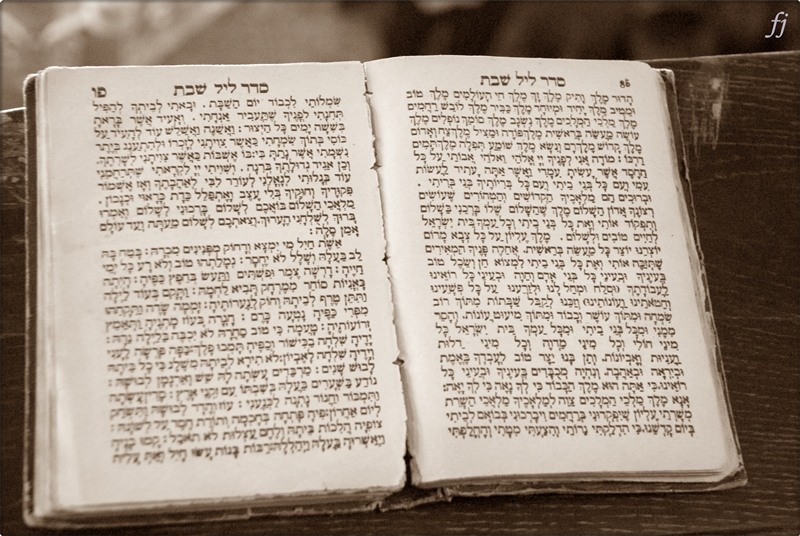 סדר ליל שבת
הדור מלך ותיק מלך זך מלך חי העולמים מלך טוב
ומטיב מלך יחיד ומיוחד מלך כביר מלך לובש רחמים
מלך מלכי המלכים מלך נשגב מלך סומך נופלים מלך
עושה מעשה בראשית מלך פודה ומציל מלך צח ואדום
מלך קדוש מלך רם ונשא מלך שומע תפלה מלך תמים
דרכו: מודה אני לפניך יי אלהי ואלהי אבותי על כל
החסד אשר עשית עמדי ואשר אתה עתיד לעשות
עמי ועם כל בני ביתי ועם כל בריותיך בני בריתי.
וברוכים הם מלאכיך הקדושים והטהורים שעושים
רצונך אדון השלום מלך שהשלום שלו ברכני בשלום
ותפקוד אותי ואת כל בני ביתי וכל עמך בית ישראל
לחיים טובים ולשלום. מלך עליון על כל צבא מרום
יוצרנו יוצר כל מעשה בראשית. אחלה פניך המאירים
שתזכה אותי ואת כל בני ביתי למצוא חן ושכל טוב
בעיניך ובעיני כל בני אדם וחוה ובעיני כל רואינו
לעבודתך וסלח ומחל לנו ולזרענו על כל פשעינו
וחטאתינו ועונותינו וזכנו לקבל שבתות מתוך רוב
שמחה ומתוך עושר וכבוד ומתוך מיעוט עונות. והסר
ממני ומכל בני ביתי ומכל עמך בית ישראל כל
מיני חולי וכל מיני מדוה וכל מיני דלות
ועניות ואביונות. ותן בנו יצר טוב לעבדך באמת
וביראה ובאהבה. ונהיה מכובדים בעיניך ובעיני כל
רואינו כי אתה הוא מלך הכבוד כי לך נאה כי לך יאה:
אנא מלך מלכי המלכים צוה למלאכיך מלאכי השרת
משרתי עליון שיפקדוני ברחמים ויברכוני בבואם לביתי
ביום קדשנו. כי הדלקתי נרותי והצעתי מטתי והחלפתי
סדר ליל שבת פו
שמלותי לכבוד יום השבת. ובאתי לביתך להפיל
תחנתי לפניך שתעביר אנחתי. ואעיד אשר בראת
בששה ימים כל היצור. ואשנה ואשלש עוד להעיד על
כוסי בתוך שמחתי כאשר צויתני לזכרו ולהתענג ביתר
נשמתי אשר נתת בי. בו אשבות כאשר צויתני לשרתך.
וכן אגיד גדולתך ברנה. ושויתי יי לקראתי שתרחמני
עוד בגלותי לגאלני לעורר לבי לאהבתך ואז אשמור
פקודיך וחוקיך בלי עצב ואתפלל כדת כראוי וכנכון.
מלאכי השלום בואכם לשלום ברכוני לשלום ואמרו
ברוך לשלחני הערוך וצאתכם לשלום מעתה ועד עולם
אמן סלה:
אשת חיל מי ימצא ורחוק מפנינים מכרה: בטח בה
לב בעלה ושלל לא יחסר: גמלתהו טוב ולא רע כל ימי
חייה: דרשה צמר ופשתים ותעש בחפץ כפיה: היתה
כאניות סוחר ממרחק תביא לחמה: ותקם בעוד לילה
ותתן טרף לביתה וחוק לנערותיה: זממה שדה ותקחהו
מפרי כפיה נטעה כרם: חגרה בעוז מתניה ותאמץ
זרועותיה: טעמה כי טוב סחרה לא יכבה בלילה נרה:
ידיה שלחה בכישור וכפיה תמכו פלך: כפה פרשה לעני
וידיה שלחה לאביון: לא תירא לביתה משלג כי כל ביתה
לבוש שנים: מרבדים עשתה לה שש וארגמן לבושה:
נודע בשערים בעלה בשבתו עם זקני ארץ: סדין עשתה
ותמכור וחגור נתנה לכנעני: עוז והדר לבושה ותשחק
ליום אחרון: פיה פתחה בחכמה ותורת חסד על לשונה:
צופיה הלכות ביתה ולחם עצלות לא תאכל: קמו בניה
ויאשרוה בעלה ויהללה: רבות בנות עשו חיל ואת עלית
fj